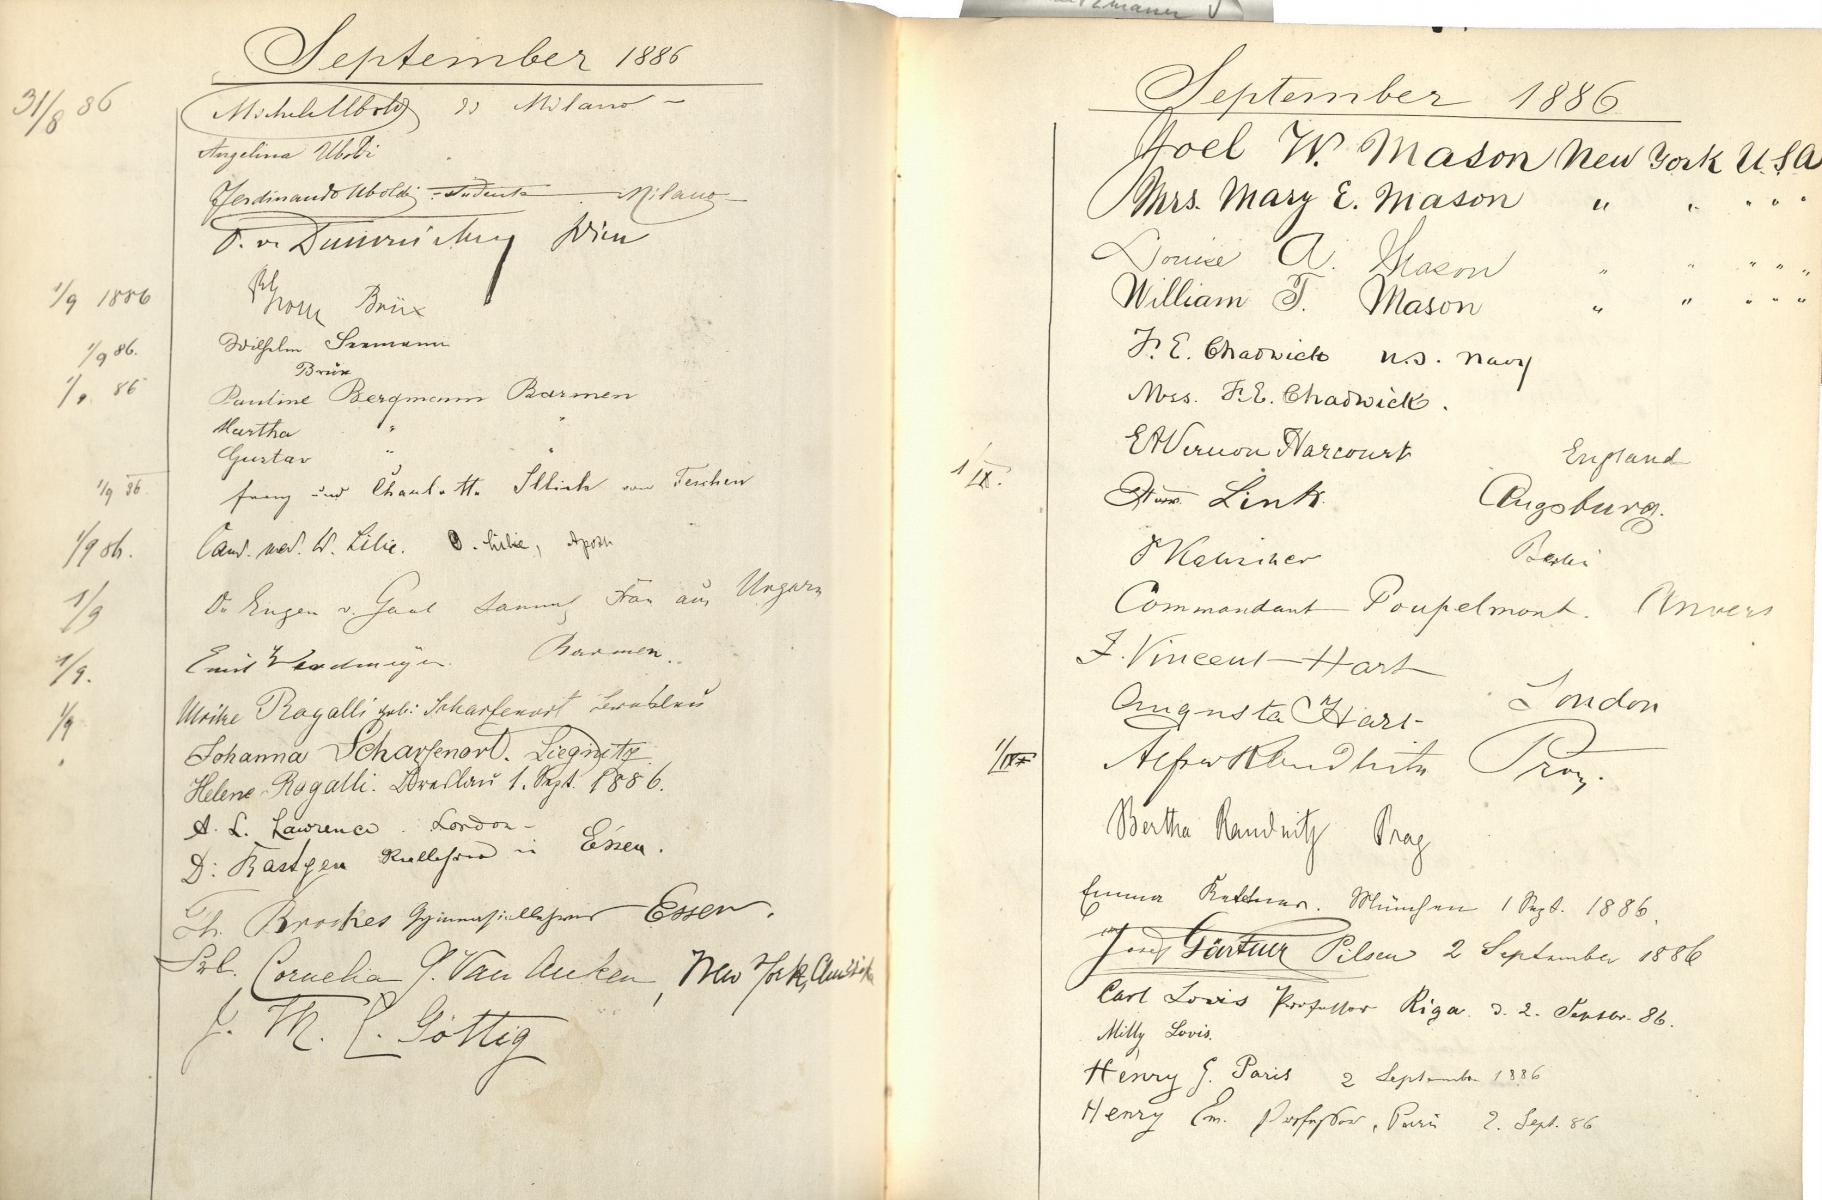 September 1886
31/8 86 Michele Uboldi di Milano
Angelina Uboldi
Ferdinando Uboldi Studente Milano
Wien
1/9 1886 Brüx
1/9 86. Wilhelm Seemann
Brüx
1/9 86 Pauline Bergmann Barmen
Martha " "
Gustav " "
1/9 86 und Charlotte von Teschen
1/9 86. Cand. med. W. Lilie. O. Lilie,
1/9 Dr Eugen v. Gaal sammt Frau aus Ungarn
1/9. Emil Barmen.
1/9 Ulrike Rogalli geb: Scharfenort Breslau
Johanna Scharfenort. Liegnitz.
Helene Rogalli. Breslau 1. Sept. 1886.
A. L. Lawrence. London
D: Rastgen in Essen.
Th. Brockes Gymnasiallehrer Essen.
Frl. Cornelia G. Van Auken, New York, Amerika
J. M. C. Göttig
September 1886
Joel W. Mason New York U.S.A
Mrs. Mary E. Mason " " " " "
Louise A. Mason " " " " "
William T. Mason " " " " "
F. E. Chadwick U.S. Navy
Mrs. F. E. Chadwick.
A Vernon Harcourt England
1/IX. Link. Augsburg.
Berlin
Commandant Poupelmont. Anvers
F. Vincent Hart
London
Augusta Hart
1/IX Alfred Raudnitz Prag.
Bertha Raudnitz Prag
Emma München 1 Sept. 1886.
Josef Gärtner Pilsen 2 September 1886
Carl Lovis Professor Riga d. 2. Septbr. 86.
Milly Lovis.
Henry G. Paris 2 September 1886
Henry Em. Professor, Paris 2. Sept. 86